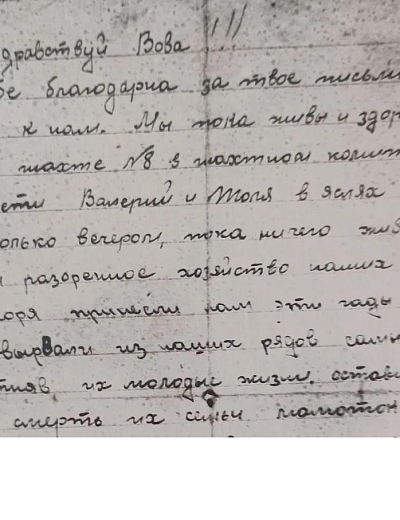 дравствуй Вова !!!
бе благодарна за твое письм
к нам. Мы пока живы и здор
шахте №8 в шахтном комит
ети Валерий и Толя в яслях
олько вечером, пока ничего жив
разоренное хозяйство наших
оря принесли нам эти годы
вырвали из наших рядов самы
тняв их молодые жизни. остав
смерть их семьи